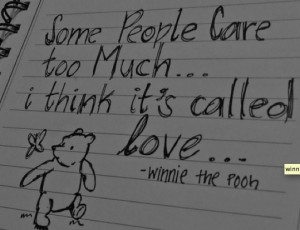 Some People Care
too Much...
i think it's called
love...
-winnie the Pooh
winn